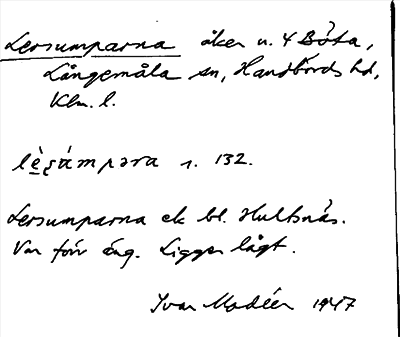 Lersumparna åker u. 4 Böta,
Långemåla sn, Handbörds hd,
Klm. l.
lèṣámpəra s. 132.
Lersumparna ek bl. Hultsnäs.
Var förr äng. Ligger lågt.
Ivar Modéer 1947